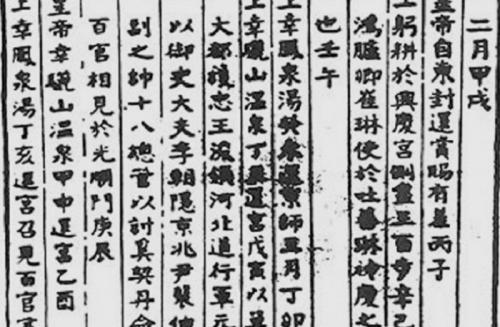 二月甲戌
皇帝自東封還賞賜有差丙子
上躬耕於興慶宮側盡三百步辛己
鴻臚卿崔琳使於吐蕃琳神慶之
也壬午
上幸鳳泉湯癸未還京師月丁卯
上幸驪山溫泉丁還宮戊寅以單
大都護忠王浚領河北道行軍元
以御史大夫李朝隱京兆尹裴伷
副之帥十八總管以討奚契丹命
百官相見於光順門庚辰
皇帝幸驪山溫泉甲申還宮乙酉
上幸鳳泉湯丁亥還宮召見百官